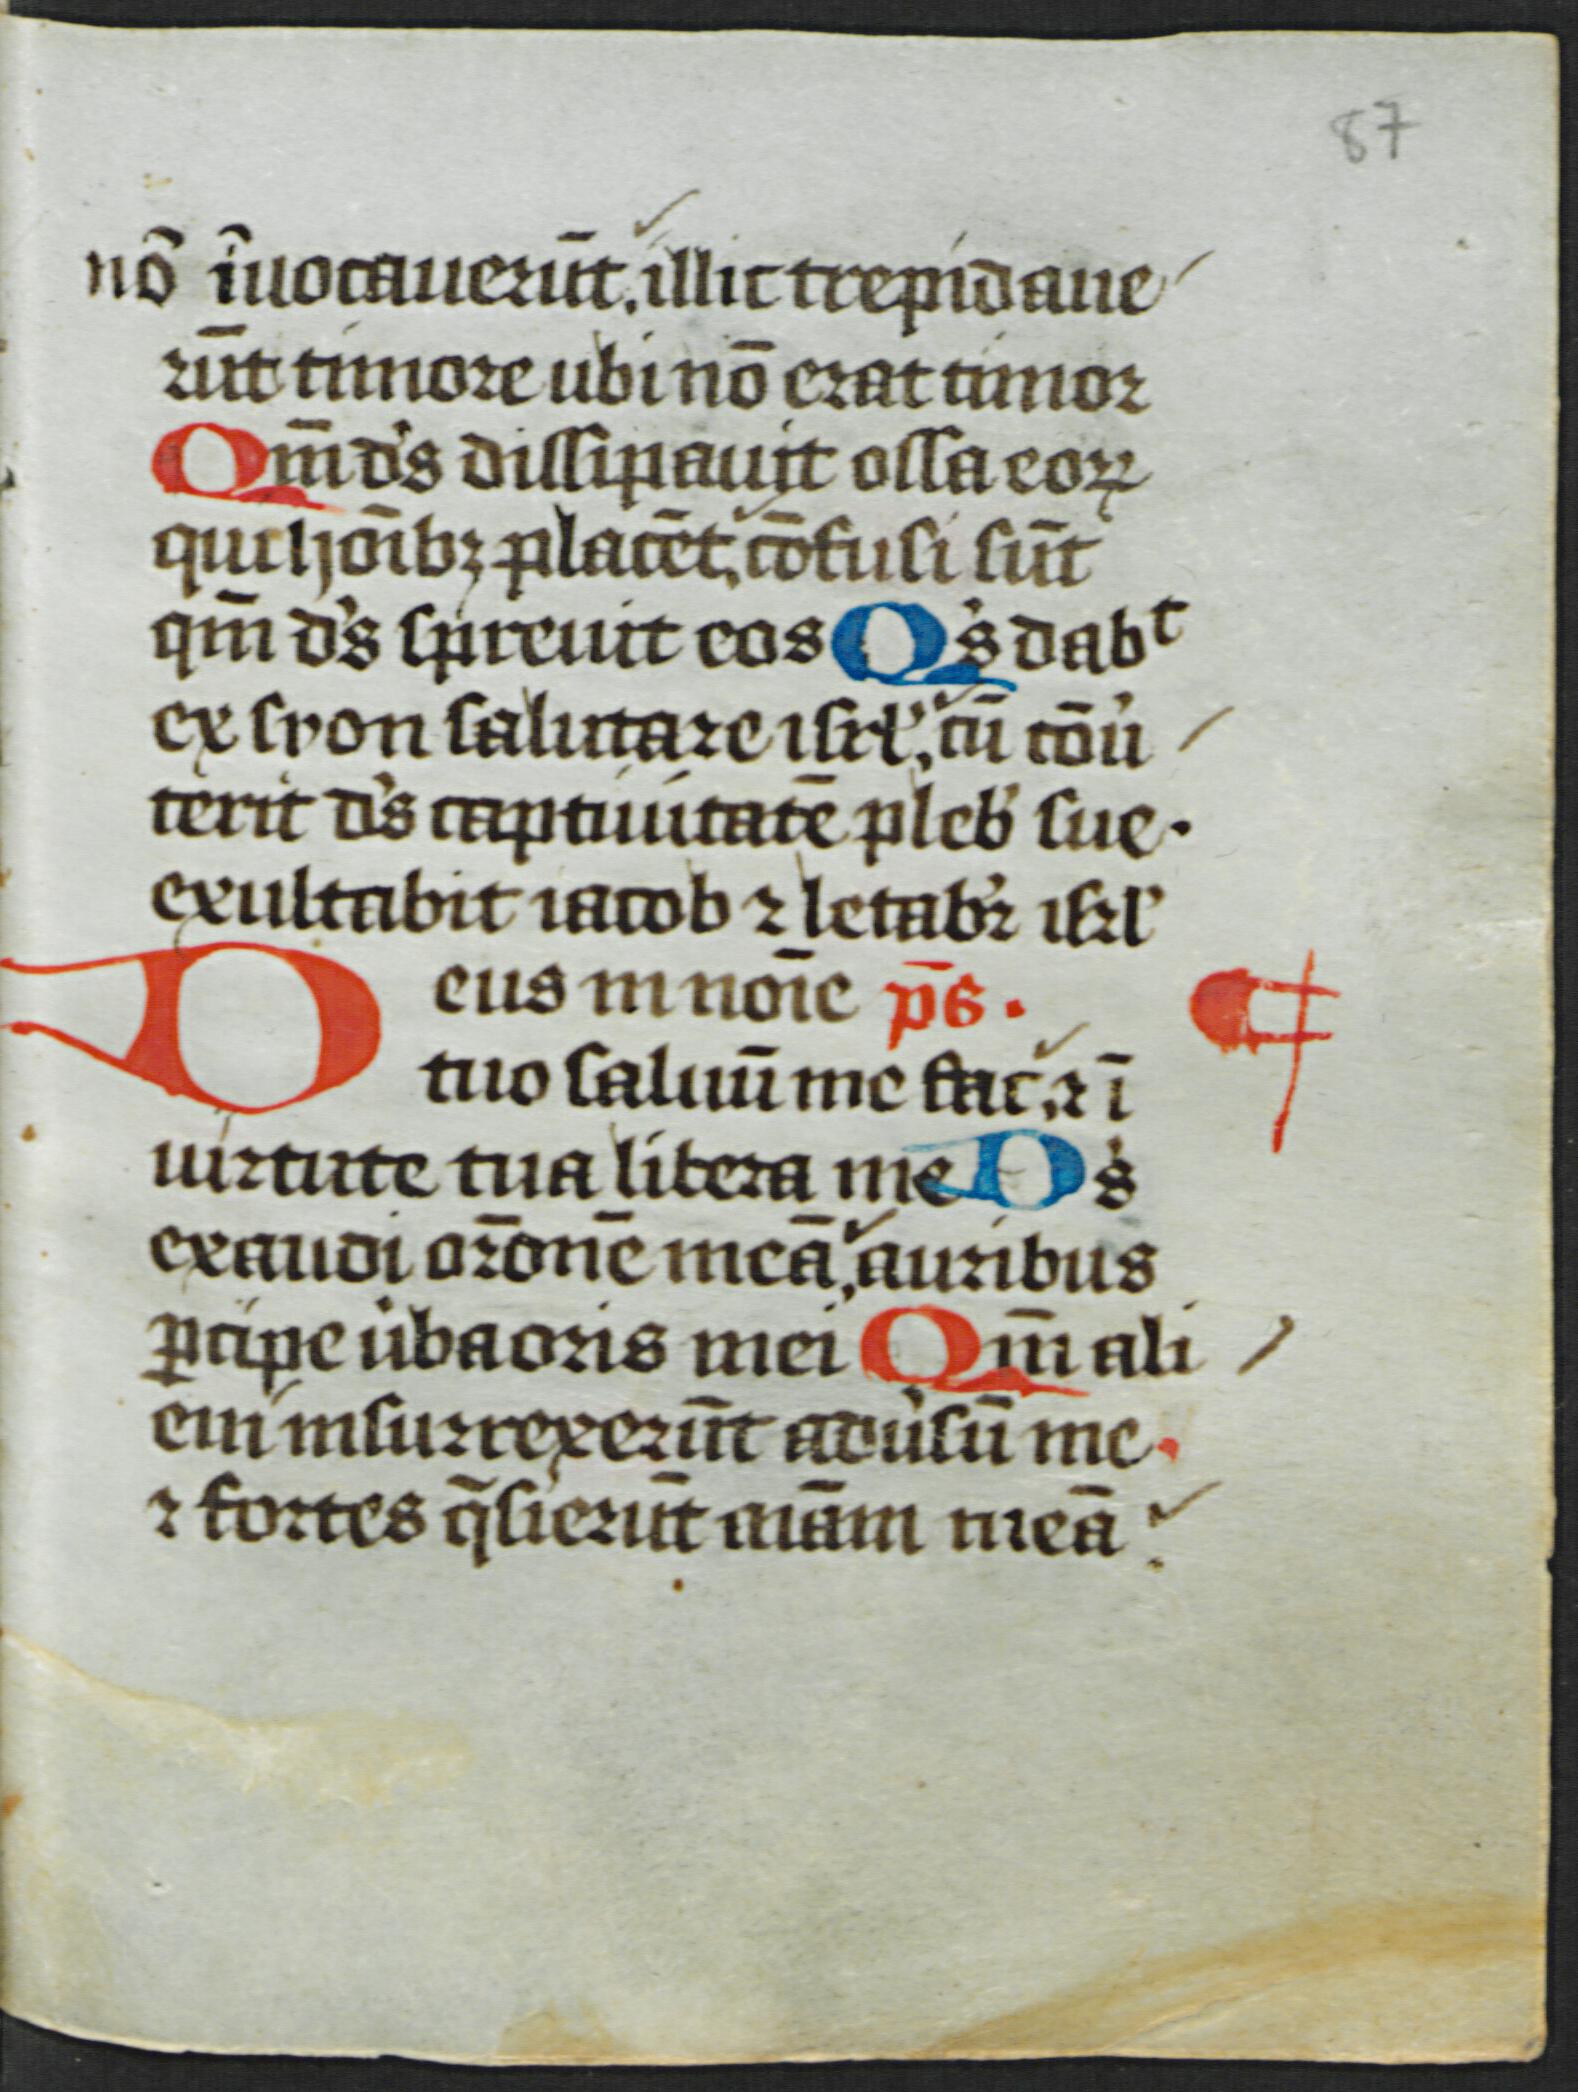 87
nō īuocauerūt. illic trepidaue
rūt timore ubi nō erat timor
Qm̄ d's dissipauit ossa eoꝝ
qui hōībꝫ placēt. cōfusi sūt
qm̄ d's spreuit eos Q's dabᵗ
ex syon salutare isrl'. cū cōu'
terit d's captiuitatē pleb' sue.
exultabit iacob ⁊ letab'r isrl'
Deus in noīe p̄s.
tuo saluū me fac. ⁊ ī
uirtute tua libera me D's
exaudi or̄onē meā. auribus
ꝑcipe u'ba oris mei Qm̄ ali
eni insurrexerūt adu'sū me.
⁊ fortes q̄sierūt aīam meā